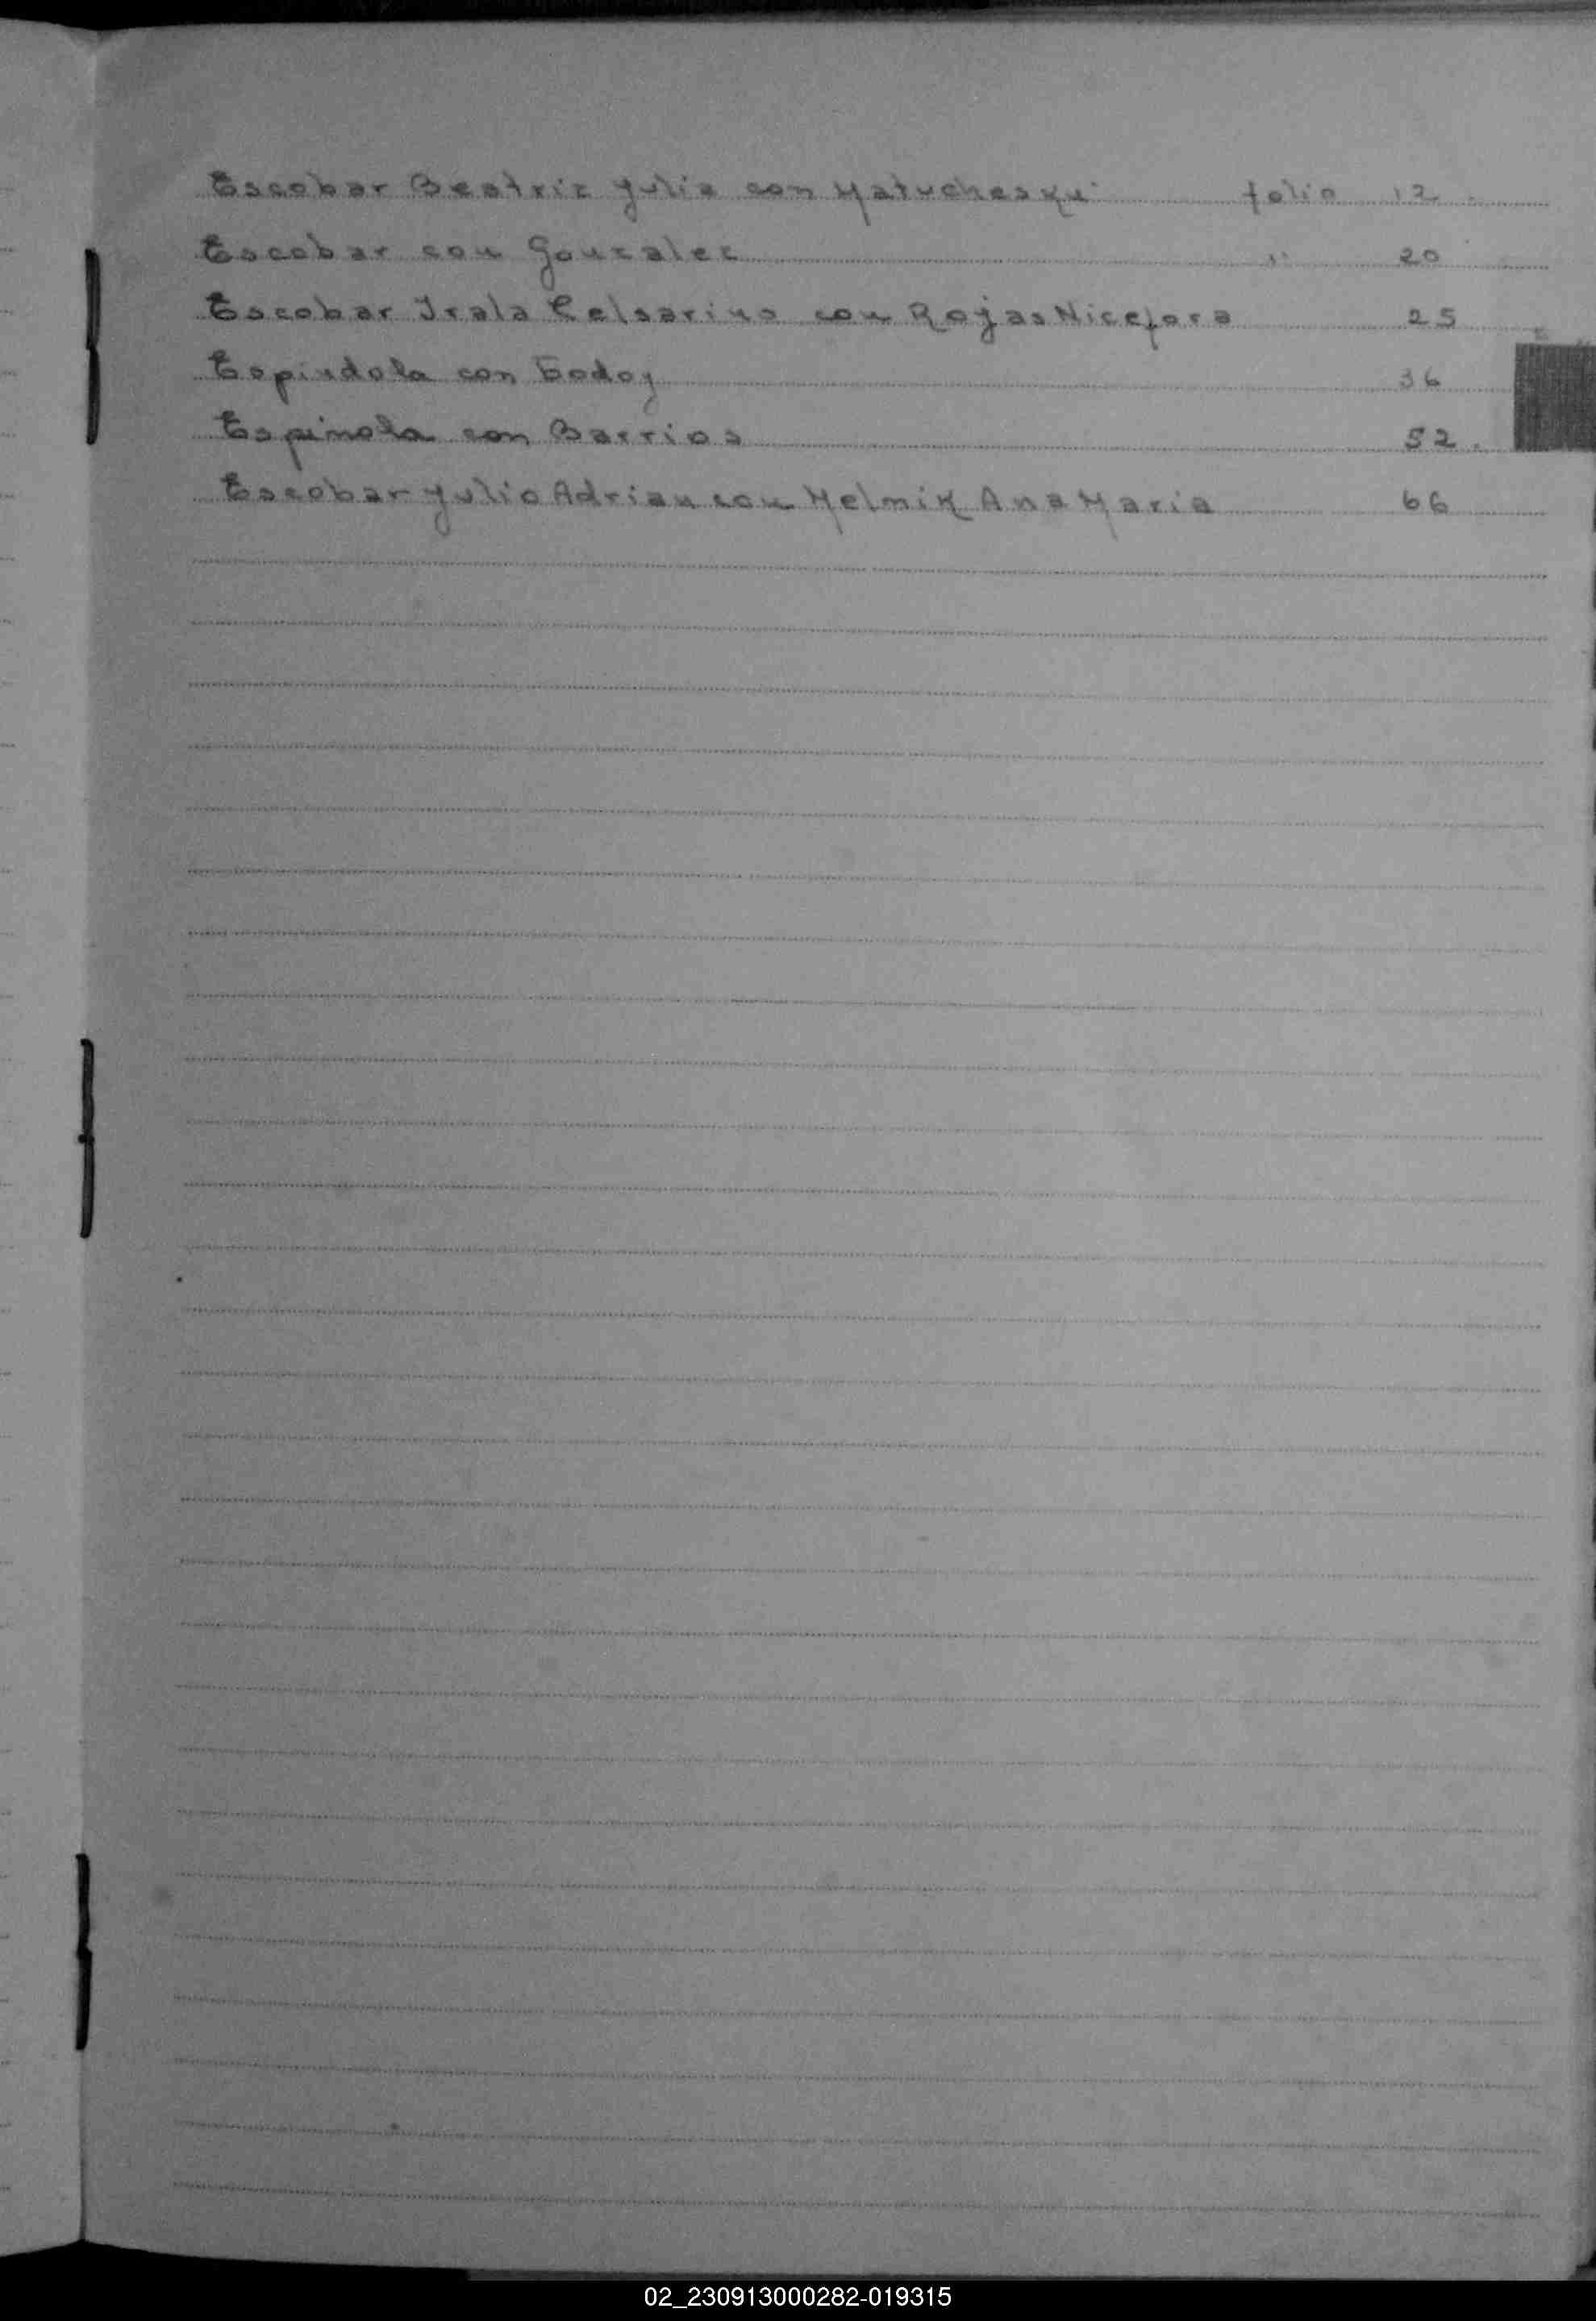 Escobar Beatriz Julia con Matucheski folio 12.
Escobar con Gonzalez " 20
Escobar Irala Celsarino con Rojas Nicefora 25
Espindola con Godoy 36
Espinola con Barrios 52.
Escobar Julio Adrian con Melnik Ana Maria 66
02_230913000282-019315